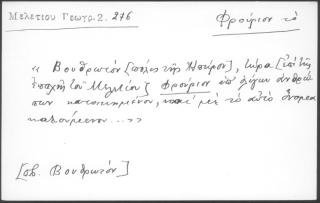 Μελετίου Γεωγρ. 2. 276
Φρούριον τό
« Βουθρωτόν [πόλις τῆς Ἠπείρου], τώρα [ἐπὶ τῆς
ἐποχῆς τοῦ Μελετίου] Φρούριον ὑπ' ὀλίγων ἀνθρώ-
πων κατοικημένον, καὶ μὲ τὸ αὐτὸ ὄνομα
καλούμενον... »
[σλ. Βουθρωτόν]